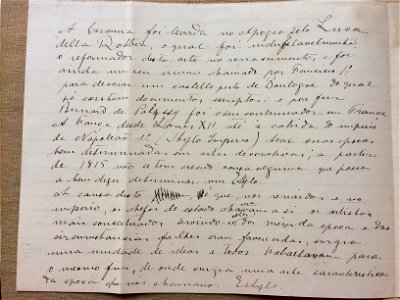 A Ceramica foi levada no apogeo pelo Luca
della Robbia, o qual foi indubitavelmente
o reformador desta arte no renascimento, e foi
ainda um seu chamado por Francisco 1º
para decorar um castello perto de Boulogne do qual
só existem documentos escriptos, e por fim
Bernard de Palissy foi o seu continuador em França
A França desde Louis XIV até á cahida do imperio
de Napoleão 1º (Stylo Imperio) teve suas epocas
bem determinadas em artes decorativas, a partir
de 1815 não se tem creado cousa alguma que possa
a bem dizer determinar um Estylo.
A causa disto é que, nos reinados e no
imperio, os chefes de estado chamavam a si os artistas
mais conceituados
circunstancias que lhes eram favorecidas, surgia
uma unidade de ideas e todos trabalhavam para
o mesmo fim, de onde surgia uma arte caracteristica
da epoca que nós chamamos Estylo.